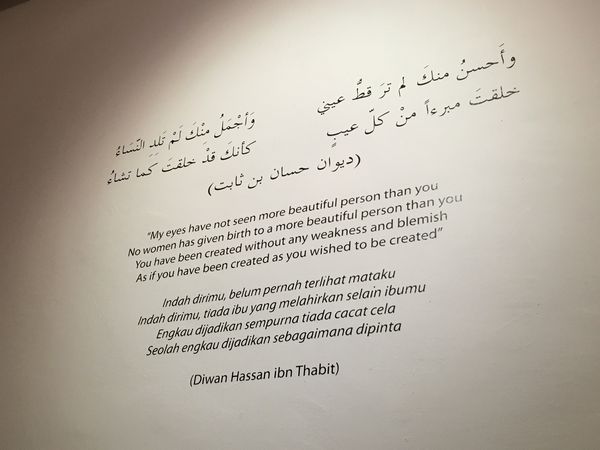 وأَحسنُ منكَ لم ترَ قطُّ عيني وَأجْمَلُ مِنْكَ لَمْ تَلِدِ النّسَاءُ
خلقتَ مبرءاً منْ كلّ عيبٍ كأنكَ قدْ خلقتَ كما تشاءُ
(ديوان حسان بن ثابت)
"My eyes have not seen more beautiful person than you
No women has given birth to a more beautiful person than you
You have been created without any weakness and blemish
As if you have been created as you wished to be created"
Indah dirimu, belum pernah terlihat mataku
Indah dirimu, tiada ibu yang melahirkan selain ibumu
Engkau dijadikan sempurna tiada cacat cela
Seolah engkau dijadikan sebagaimana dipinta
(Diwan Hassan ibn Thabit)